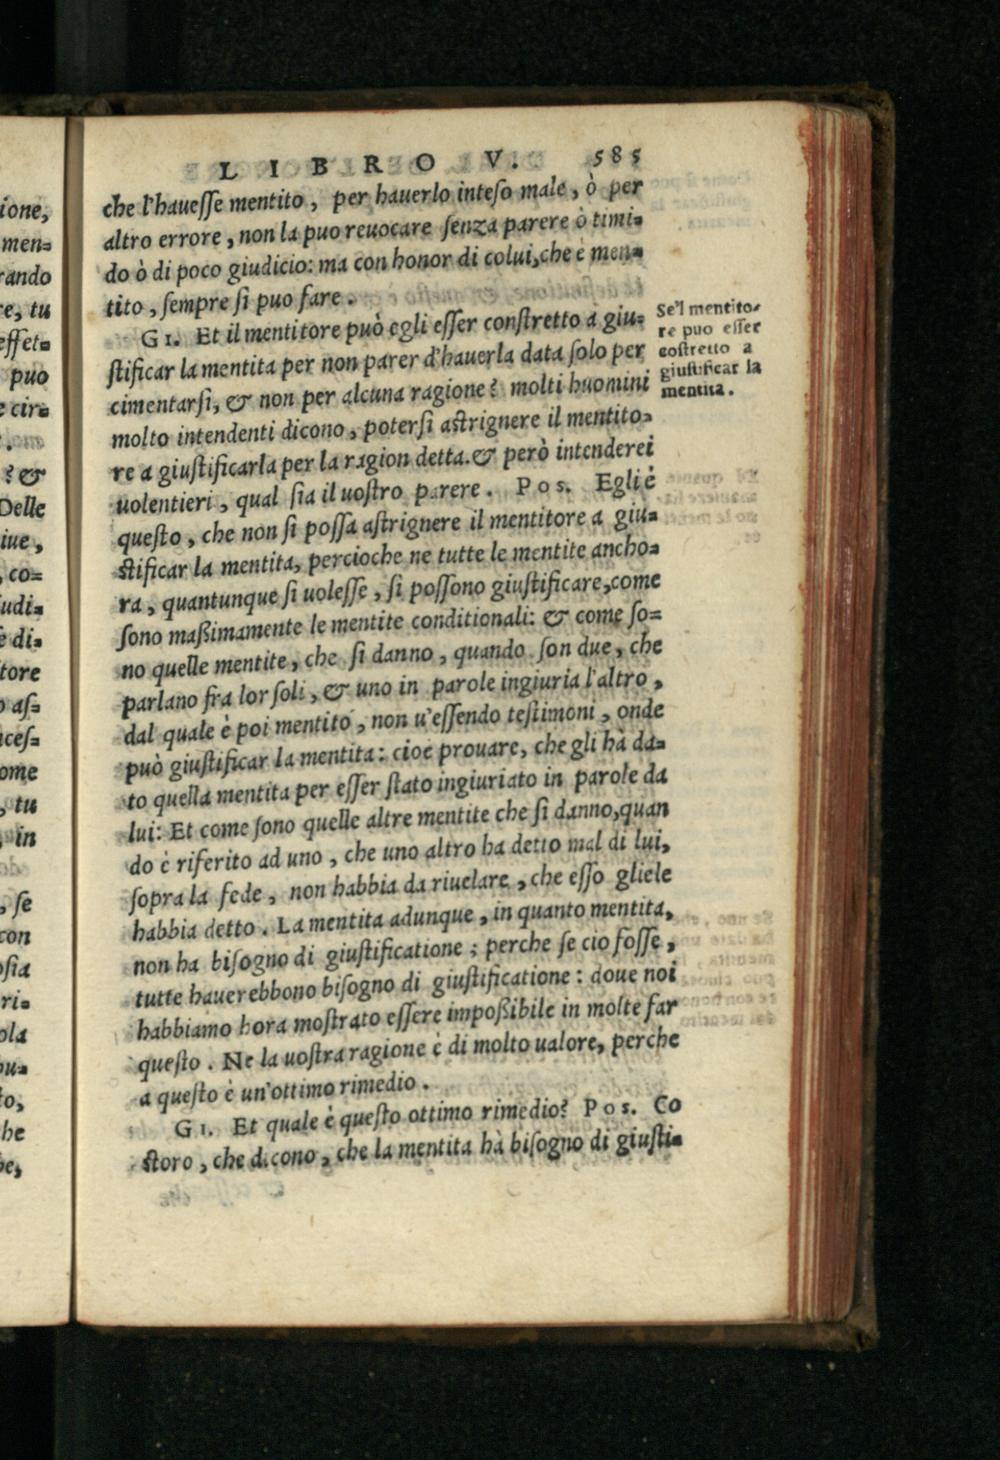 LIBRO V. 585
che l'hauesse mentito, per hauerlo inteso male, ò per
altro errore, non la puo reuocare senza parere ò timi-
do ò di poco giudicio: ma con honor di colui, che è men-
tito, sempre si puo fare.
GI. Et il mentitore può egli esser constretto à giu-
stificar la mentita per non parer d'hauerla data solo per
cimentarsi, & non per alcuna ragione? molti huomini
molto intendenti dicono, potersi astrignere il mentito-
re a giustificarla per la ragion detta. & però intenderei
uolentieri, qual sia il uostro parere. Pos. Egli è
questo, che non si possa astrignere il mentitore a giu-
stificar la mentita, percioche ne tutte le mentite ancho-
ra, quantunque si uolesse, si possono giustificare, come
sono maßimamente le mentite conditionali: & come so-
no quelle mentite, che si danno, quando son due, che
parlano fra lor soli, & uno in parole ingiuria l'altro,
dal quale è poi mentito, non u'essendo testimoni, onde
può giustificar la mentita: cioè prouare, che gli hà da-
to quella mentita per esser stato ingiuriato in parole da
lui: Et come sono quelle altre mentite che si danno, quan
do è riferito ad uno, che uno altro ha detto mal di lui,
sopra la fede, non habbia da riuelare, che esso gliele
habbia detto. La mentita adunque, in quanto mentita,
non ha bisogno di giustificatione; perche se cio fosse,
tutte hauerebbono bisogno di giustificatione: doue noi
habbiamo hora mostrato essere impoßibile in molte far
questo. Ne la uostra ragione è di molto ualore, perche
a questo è un'ottimo rimedio.
GI. Et quale è questo ottimo rimedio? Pos. Co
storo, che dicono, che la mentita hà bisogno di giusti-
Se'l mentito-
re puo esser
costretto a
giustificar la
mentita.
ione,
men-
rando
re, tu
effet-
puo
e cir-
? &
Delle
iue,
, co-
udi-
e di-
tore
o as-
ces-
ome
, tu
, in
, se
con
osia
ri-
ola
ou-
to,
he
be,